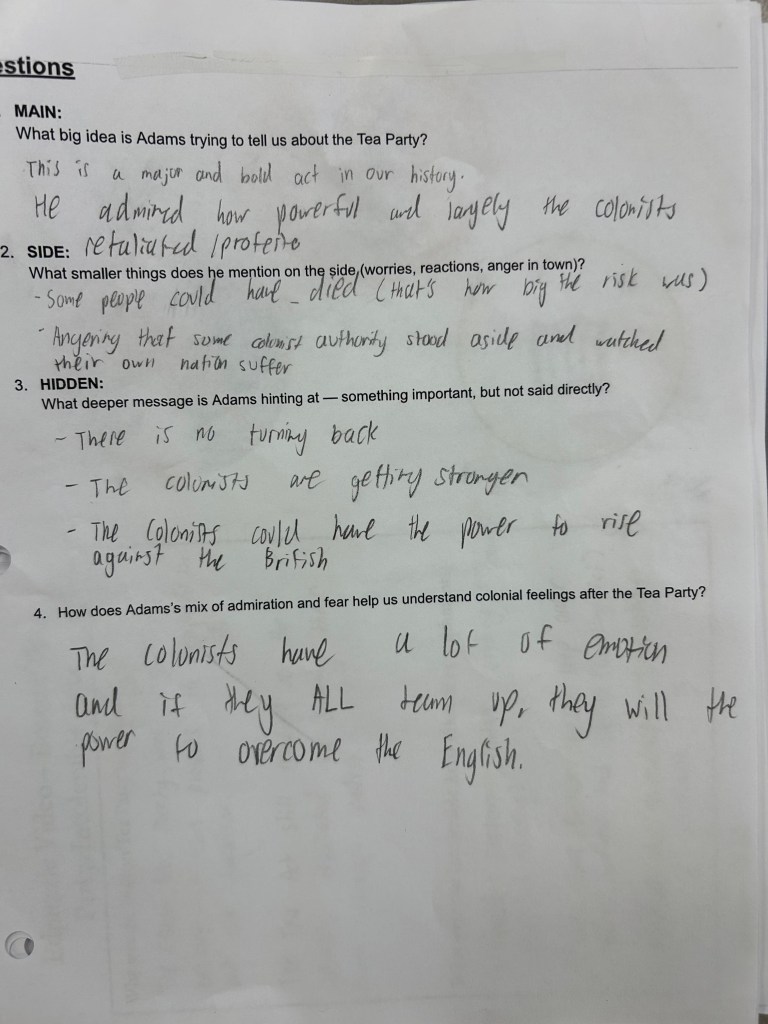 estions
MAIN:
What big idea is Adams trying to tell us about the Tea Party?
This is a major and bold act in our history.
He admired how powerful and largely the colonists
retaliated /
2. SIDE:
What smaller things does he mention on the side, (worries, reactions, anger in town)?
- Some people could have died (that's how big the risk was)
- Angering that some colonist authority stood aside and watched
their own nation suffer
3. HIDDEN:
What deeper message is Adams hinting at — something important, but not said directly?
- There is no turning back
- The colonists are getting stronger
- The Colonists could have the power to rise
against the British
4. How does Adams's mix of admiration and fear help us understand colonial feelings after the Tea Party?
The colonists have a lot of emotion
and if they ALL team up, they will the
power to overcome the English.